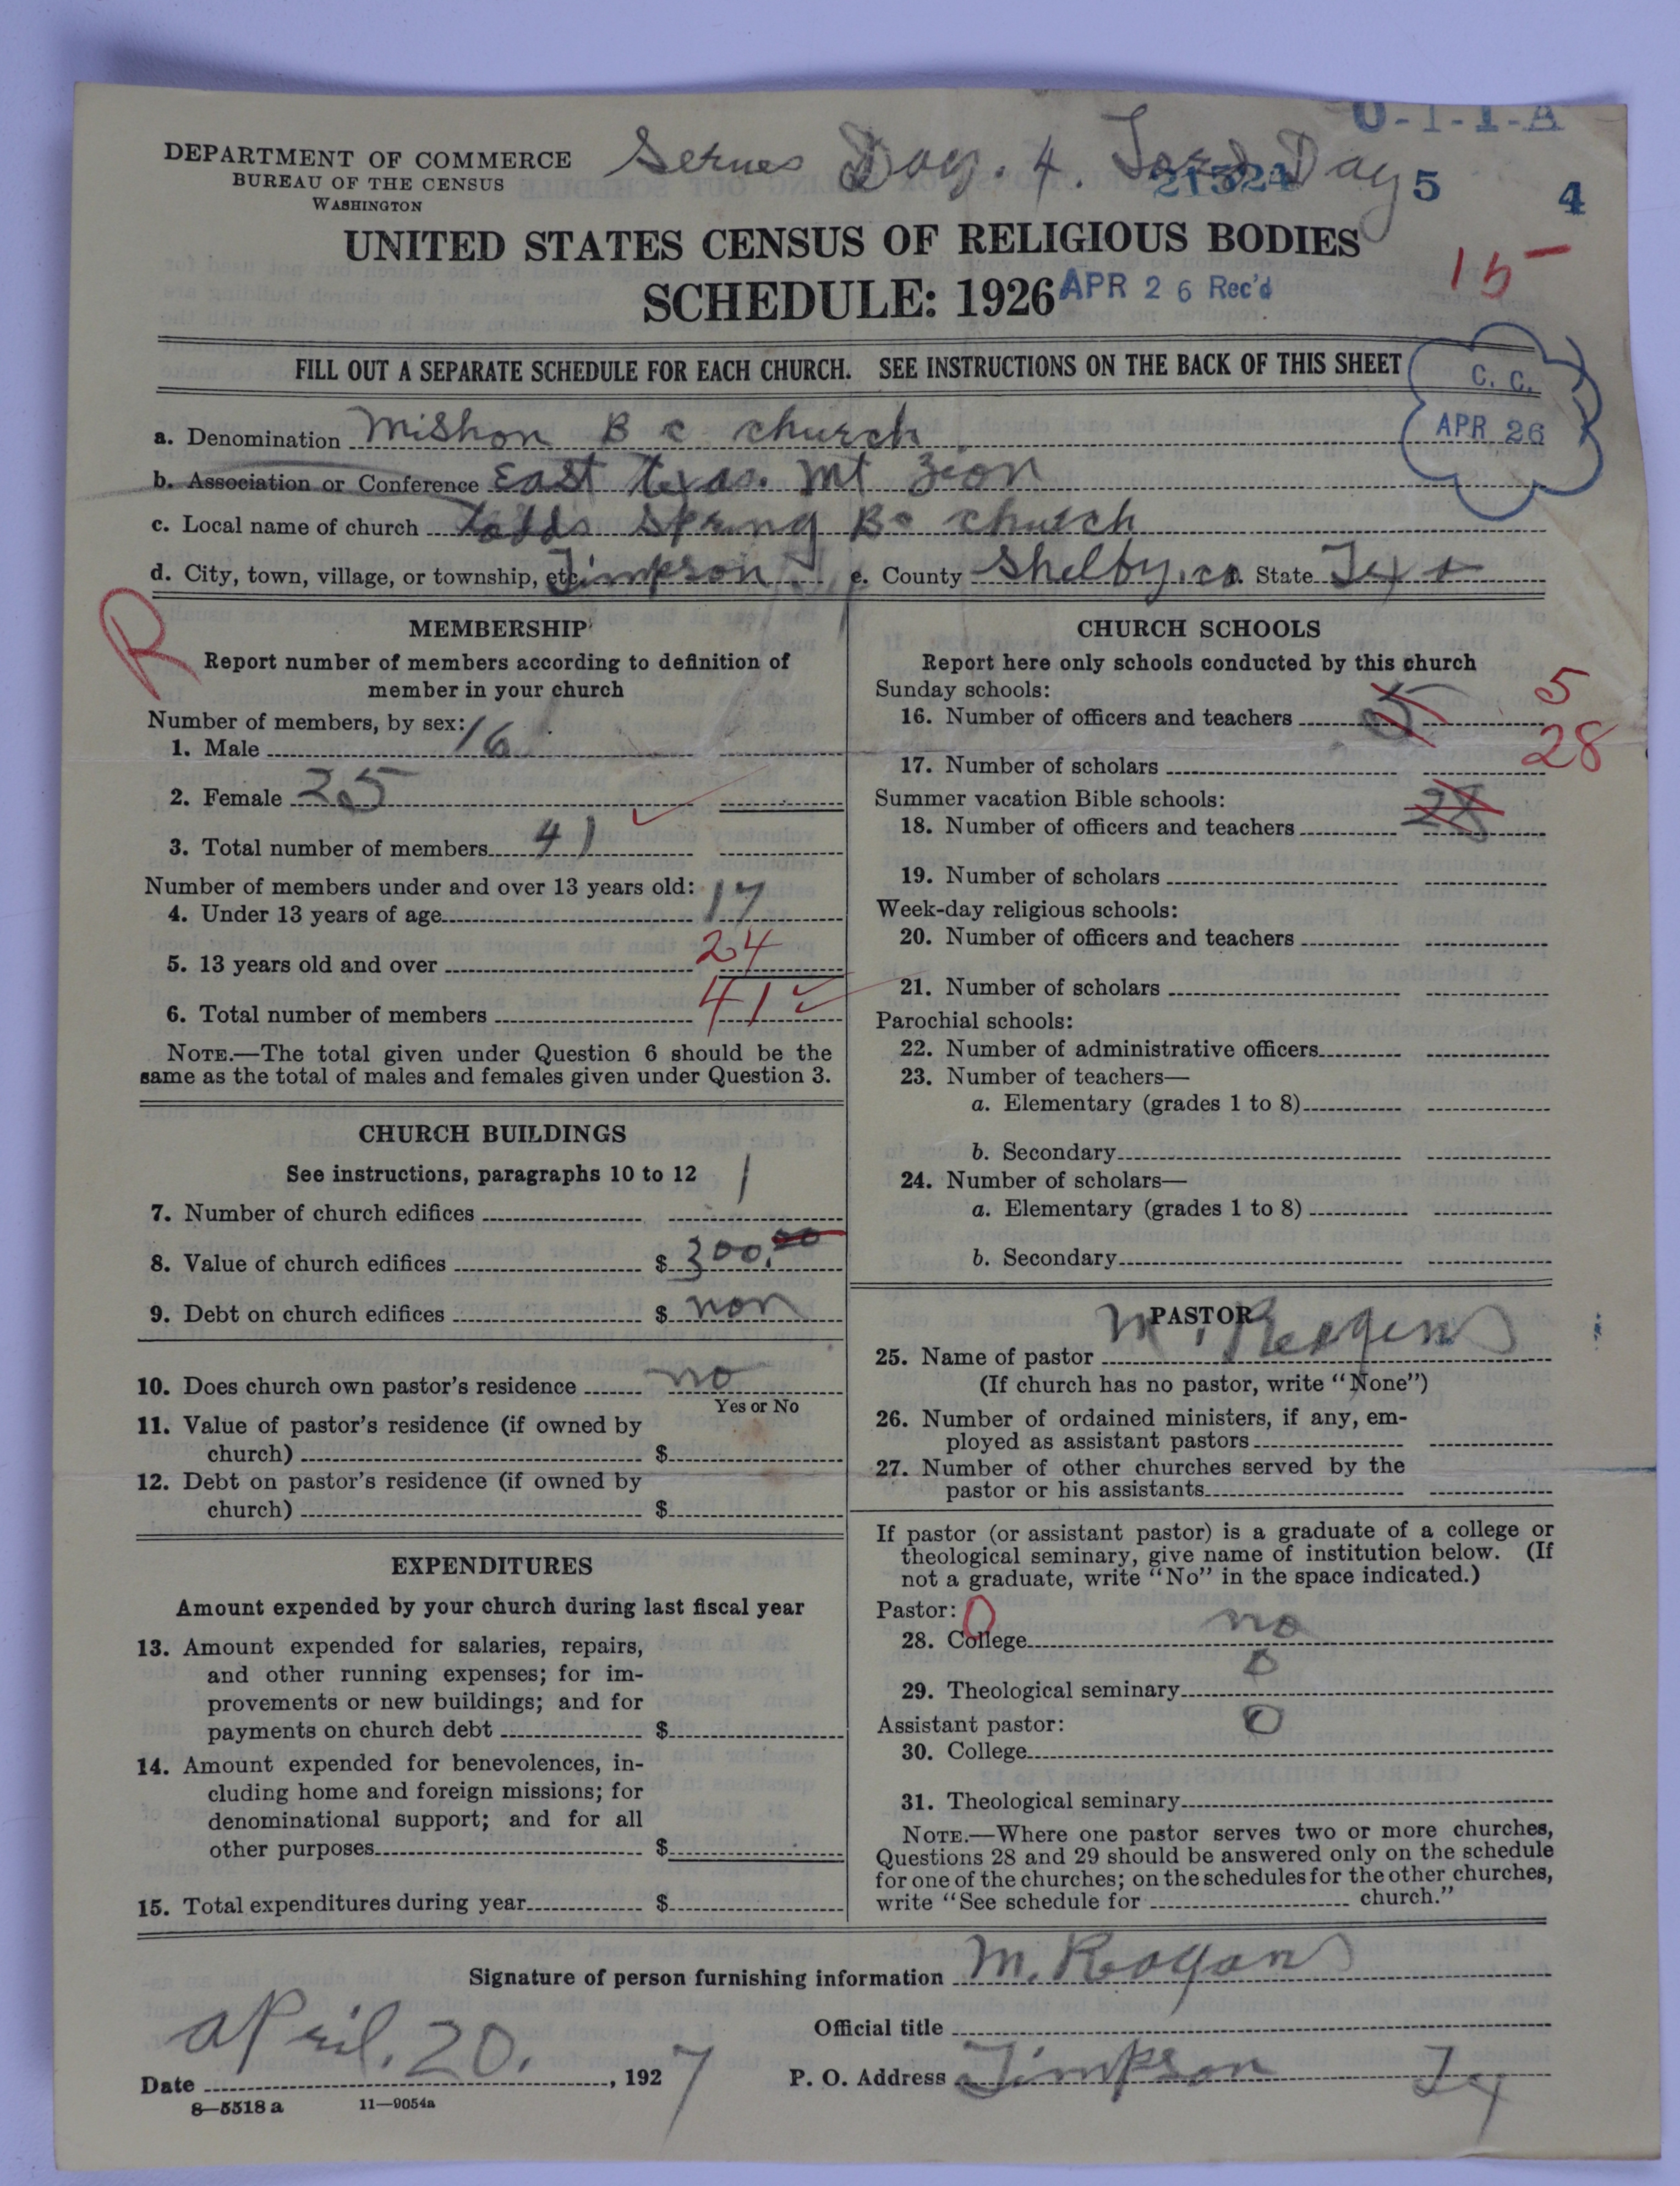 0-1-1-A
DEPARTMENT OF COMMERCE
BUREAU OF THE CENSUS
WASHINGTON
Serves Day. 4. Lord Day
21324 5 4
UNITED STATES CENSUS OF RELIGIOUS BODIES
SCHEDULE: 1926 APR 26 Rec'd
15
FILL OUT A SEPARATE SCHEDULE FOR EACH CHURCH. SEE INSTRUCTIONS ON THE BACK OF THIS SHEET
C. C.
APR 26
a. Denomination Mishon B c church
b. Association or Conference East texas. Mt Zion
c. Local name of church todds spring Bc church
d. City, town, village, or township, etc. Timpson e. County Shelby. co. State Tex
R
MEMBERSHIP
Report number of members according to definition of
member in your church
Number of members, by sex:
1. Male 16
2. Female 25
3. Total number of members 41
Number of members under and over 13 years old:
4. Under 13 years of age 17
5. 13 years old and over 24
6. Total number of members 41
NOTE.—The total given under Question 6 should be the
same as the total of males and females given under Question 3.
CHURCH BUILDINGS
See instructions, paragraphs 10 to 12
7. Number of church edifices 1
8. Value of church edifices $ 300.00
9. Debt on church edifices $ non
10. Does church own pastor's residence no
Yes or No
11. Value of pastor's residence (if owned by
church) $
12. Debt on pastor's residence (if owned by
church) $
EXPENDITURES
Amount expended by your church during last fiscal year
13. Amount expended for salaries, repairs,
and other running expenses; for im-
provements or new buildings; and for
payments on church debt $
14. Amount expended for benevolences, in-
cluding home and foreign missions; for
denominational support; and for all
other purposes $
15. Total expenditures during year $
CHURCH SCHOOLS
Report here only schools conducted by this church
Sunday schools:
16. Number of officers and teachers 5 5
17. Number of scholars 28
Summer vacation Bible schools:
18. Number of officers and teachers 28
19. Number of scholars
Week-day religious schools:
20. Number of officers and teachers
21. Number of scholars
Parochial schools:
22. Number of administrative officers
23. Number of teachers—
a. Elementary (grades 1 to 8)
b. Secondary
24. Number of scholars—
a. Elementary (grades 1 to 8)
b. Secondary
PASTOR
25. Name of pastor M. Reagens
(If church has no pastor, write "None")
26. Number of ordained ministers, if any, em-
ployed as assistant pastors
27. Number of other churches served by the
pastor or his assistants
If pastor (or assistant pastor) is a graduate of a college or
theological seminary, give name of institution below. (If
not a graduate, write "No" in the space indicated.)
Pastor: 0
28. College no
29. Theological seminary 0
Assistant pastor:
30. College 0
31. Theological seminary
NOTE.—Where one pastor serves two or more churches,
Questions 28 and 29 should be answered only on the schedule
for one of the churches; on the schedules for the other churches,
write "See schedule for church."
Signature of person furnishing information M. Reogans
Official title
Date April. 20. , 1927 P. O. Address Timpson Tex
8—5518 a 11—9054a